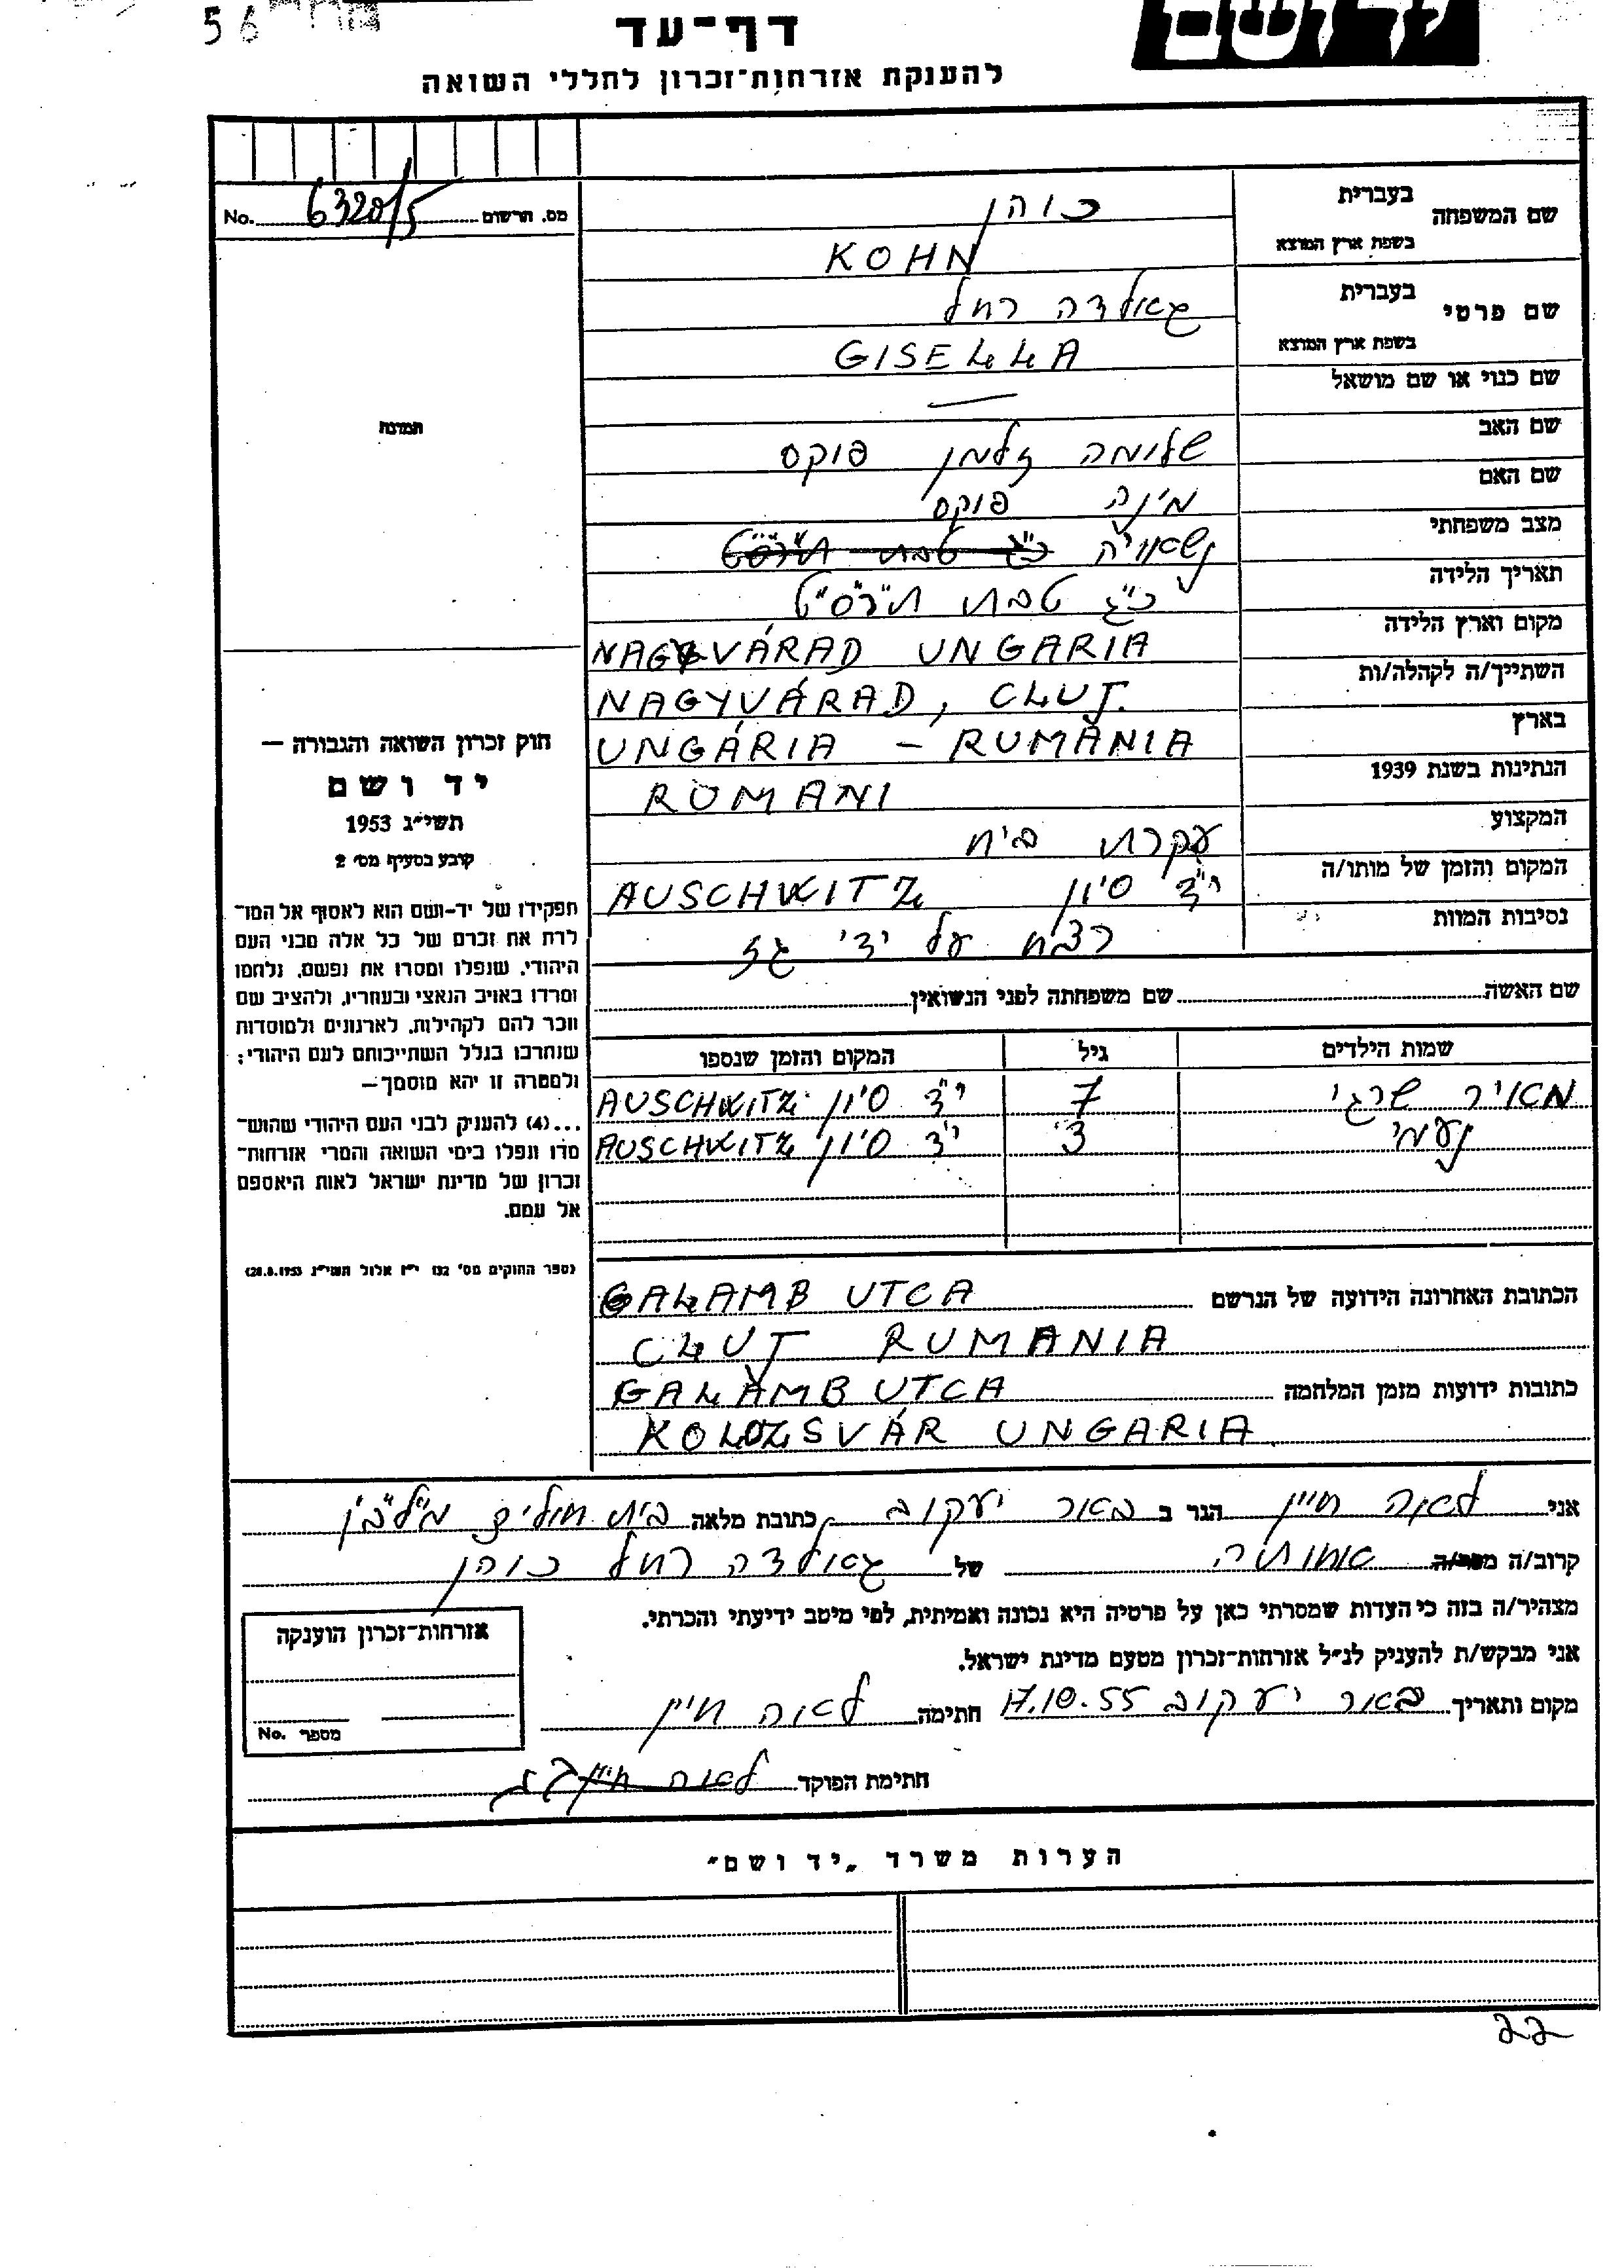 56
יד ושם
דף־עד
להענקת אזרחות־זכרון לחללי השואה
No. 6320/5 מס. הרשום
שם המשפחה בעברית כוהן
בשפת ארץ המוצא KOHN
שם פרטי בעברית גאולדה רחל
בשפת ארץ המוצא GISELLA
שם כנוי או שם מושאל —
שם האב שלומה זלמן פוקס
שם האם מינה פוקס
מצב משפחתי נשאויה כ״ג טבת תרס״ט
תאריך הלידה כ״ג טבת תרס״ט
מקום וארץ הלידה NAGYVÁRAD UNGARIA
השתייך/ה לקהלה/ות NAGYVÁRAD, CLUJ.
בארץ UNGÁRIA – RUMÂNIA
הנתינות בשנת 1939 ROMANI
המקצוע עקרת בית
המקום והזמן של מותו/ה י״ד סיון AUSCHWITZ
נסיבות המוות רצח על ידי גז
שם האשה שם משפחתה לפני הנשואין
שמות הילדים גיל המקום והזמן שנספו
מאיר שרגי 7 י״ד סיון AUSCHWITZ
נעמי 3 י״ד סיון AUSCHWITZ
הכתובת האחרונה הידועה של הנרשם GALAMB UTCA
CLUJ RUMANIA
כתובות ידועות מזמן המלחמה GALAMB UTCA
KOLOZSVÁR UNGARIA
תמונה
חוק זכרון השואה והגבורה —
יד ושם
תשי״ג 1953
קובע בסעיף מס׳ 2
תפקידו של יד-ושם הוא לאסוף אל המו־
לדת את זכרם של כל אלה מבני העם
היהודי, שנפלו ומסרו את נפשם, נלחמו
ומרדו באויב הנאצי ובעוזריו, ולהציב שם
וזכר להם לקהילות, לארגונים ולמוסדות
שנחרבו בגלל השתייכותם לעם היהודי;
ולמטרה זו יהא מוסמך—
...(4) להענקק לבני העם היהודי שהוש־
מדו ונפלו בימי השואה והמרי אזרחות־
זכרון של מדינת ישראל לאות היאספם
אל עמם.
(ספר החוקים מס׳ 132 י״ז אלול תשי״ג 28.8.1953)
אני לאה חיין הגר ב באר יעקוב כתובת מלאה בית חולים מל״בן
קרוב/ה מכר/ה אחותה של גאולדה רחל כוהן
מצהיר/ה בזה כי העדות שמסרתי כאן על פרטיה היא נכונה ואמיתית, לפי מיטב ידיעתי והכרתי.
אני מבקש/ת להעניק לנ״ל אזרחות־זכרון מטעם מדינת ישראל.
מקום ותאריך באר יעקוב 17.10.55 חתימה לאה חיין
חתימת הפוקד לאה חיין
אזרחות־זכרון הוענקה
No. מספר
הערות משרד „יד ושם״